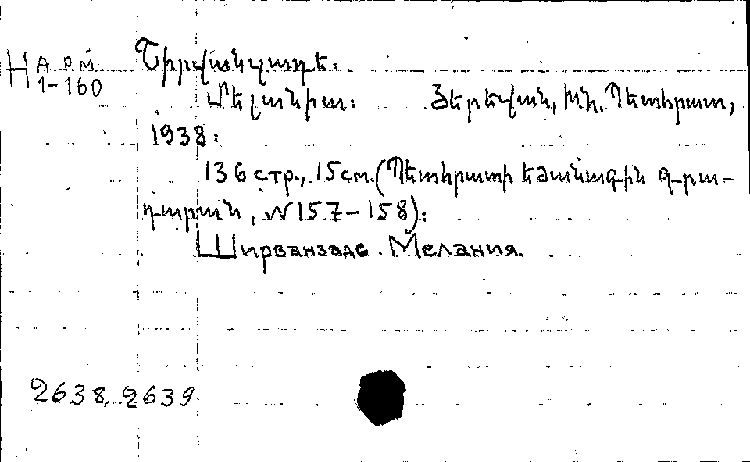 Н Арм
1-160
Շիրվանզադե։
Մելանիա։ Յերեվան, հհ. Պետհրատ,
1938։
136 стр., 15 см. (Պետհրատի եժանագին գրա-
դարան, №157-158)։
Ширванзаде. Мелания.
2638, 2639